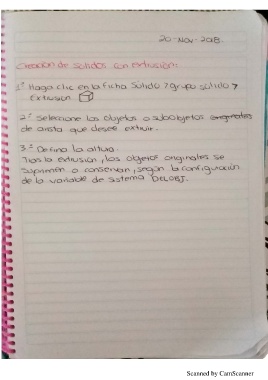 20-Nov-2018.
Creación de Solidos con extrusión.
1º Haga clic en la ficha Sólido > grupo sólido >
Extrusión
2º Seleccione los objetos o subobjetos originales
de arista que desee extruir.
3º Defina la altura.
Tras la extrusión, los objetos originales se
suprimen o conservan, según la configuración
de la variable de sistema DELOBJ.
Scanned by CamScanner